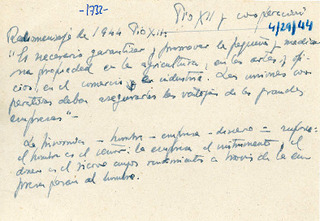 -1932-
Pio XII y cooperacion
4/29/44
Radiomensaje de 1944 Pio XII:
"Es necesario garantizar y promover la pequeña y mediana
propiedad en la agricultura, en las artes y ofi-
cios, en el comercio y la industria. Las uniones coo-
perativas deben asegurarles las ventajas de las grandes
empresas"-
La - hombre - empresa - dinero =
el hombre es el : la empresa el instrumento, el
dinero es el a través de la em-
presa para el hombre.